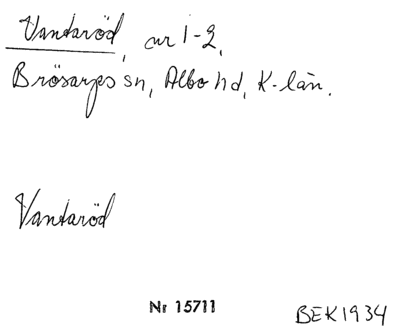 Vantaröd, nr 1-2,
Brösarps sn, Albo hd, K-län.
Vantaröd
Nr 15711
BEK1934